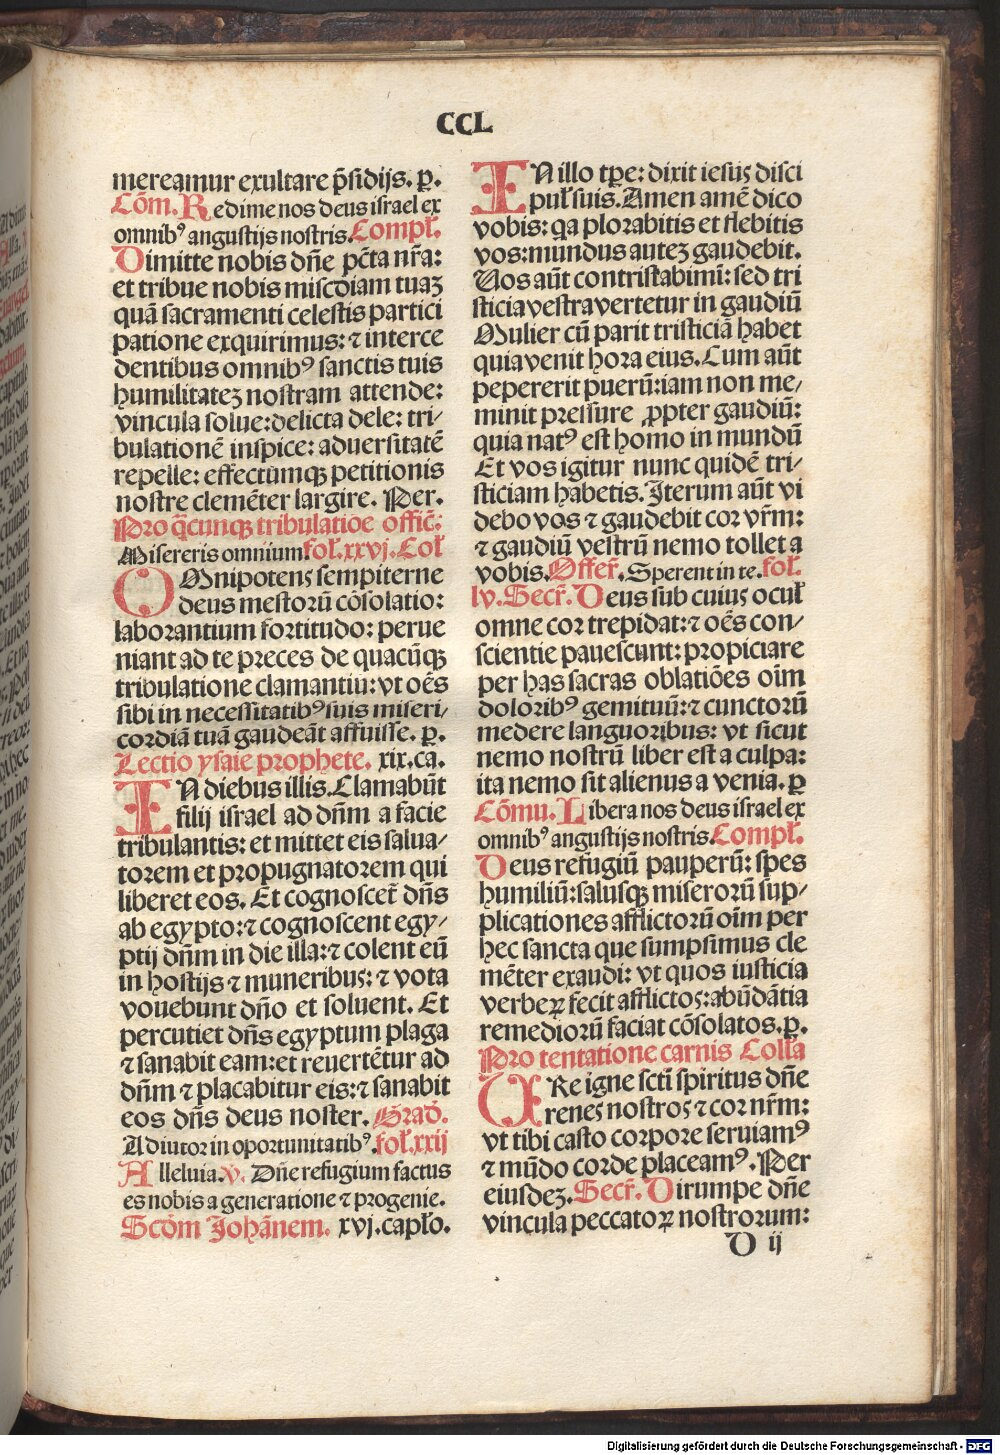 CCL
mereamur exultare p̄sidijs. p̱.
Cōm. Redime nos deus israel ex
omnibꝰ angustijs nostris. Compl̄.
Dimitte nobis dn̄e pc̄ta nr̄a:
et tribue nobis miscdiam tuaꝫ
quā sacramenti celestis partici
patione exquirimus: ⁊ interce
dentibus omnibꝰ sanctis tuis
humilitateꝫ nostram attende:
vincula solue: delicta dele: tri-
bulationē inspice: aduersitatē
repelle: effectumqꝫ petitionis
nostre clemēter largire. Per.
Pro q̄cunqꝫ tribulatiōe offic̄:
Misereris omnium fol̄. xxvj. Col̄
OMnipotens sempiterne
deus mestorū cōsolatio:
laborantium fortitudo: perue
niant ad te preces de quacūqꝫ
tribulatione clamantiū: vt oēs
sibi in necessitatibꝰ suis miseri/
cordiā tuā gaudeāt affuisse. p̱.
Lectio ysaie prophete. xix. ca.
IN diebus illis. Clamabūt
filij israel ad dn̄m a facie
tribulantis: et mittet eis salua/
torem et propugnatorem qui
liberet eos. Et cognoscet̄ dn̄s
ab egypto: ⁊ cognoscent egy/
ptij dn̄m in die illa: ⁊ colent eū
in hostijs ⁊ muneribus: ⁊ vota
vouebunt dn̄o et soluent. Et
percutiet dn̄s egyptum plaga
⁊ sanabit eam: et reuertētur ad
dn̄m ⁊ placabitur eis: ⁊ sanabit
eos dn̄s deus noster. Grad̄.
Adiutor in oportunitatibꝰ. fol̄. xxij
Alleluia. v. Dn̄e refugium factus
es nobis a generatione ⁊ progenie.
Scd̄m Johānem. xvj. capl̄o.
IN illo tp̄e: dixit iesus disci
pul̄ suis. Amen amē dico
vobis: qa plorabitis et flebitis
vos: mundus auteꝫ gaudebit.
Uos aūt contristabimī: sed tri
sticia vestra vertetur in gaudiū
Mulier cū parit tristiciā habet
quia venit hora eius. Cum aūt
pepererit puerū: iam non me/
minit pressure ꝓpter gaudiū:
quia natꝰ est homo in mundū
Et vos igitur nunc quidē tri/
sticiam habetis. Iterum aūt vi
debo vos ⁊ gaudebit cor vr̄m:
⁊ gaudiū vestrū nemo tollet a
vobis. Offer̄. Sperent in te. fol̄.
lv. Secr̄. Deus sub cuius ocul̄
omne cor trepidat: ⁊ oēs con/
scientie pauescunt: propiciare
per has sacras oblatiōes oīm
doloribꝰ gemituū: ⁊ cunctorū
medere languoribus: vt sicut
nemo nostrū liber est a culpa:
ita nemo sit alienus a venia. p̱
Cōmu. Libera nos deus israel ex
omnibꝰ angustijs nostris. Compl̄.
Deus refugiū pauperū: spes
humiliū: salusqꝫ miserorū sup/
plicationes afflictorū oīm per
hec sancta que sumpsimus cle
mēter exaudi: vt quos iusticia
verbeꝝ fecit afflictos: abūdātia
remediorū faciat cōsolatos. p̱.
Pro tentatione carnis Coll̄a
URe igne scti spiritus dn̄e
renes nostros ⁊ cor nr̄m:
vt tibi casto corpore seruiamꝰ
⁊ mūdo corde placeamꝰ. Per
eiusdeꝫ. Secr̄. Dirumpe dn̄e
vincula peccatoꝝ nostrorum:
D ij
Digitalisierung gefördert durch die Deutsche Forschungsgemeinschaft - DFG